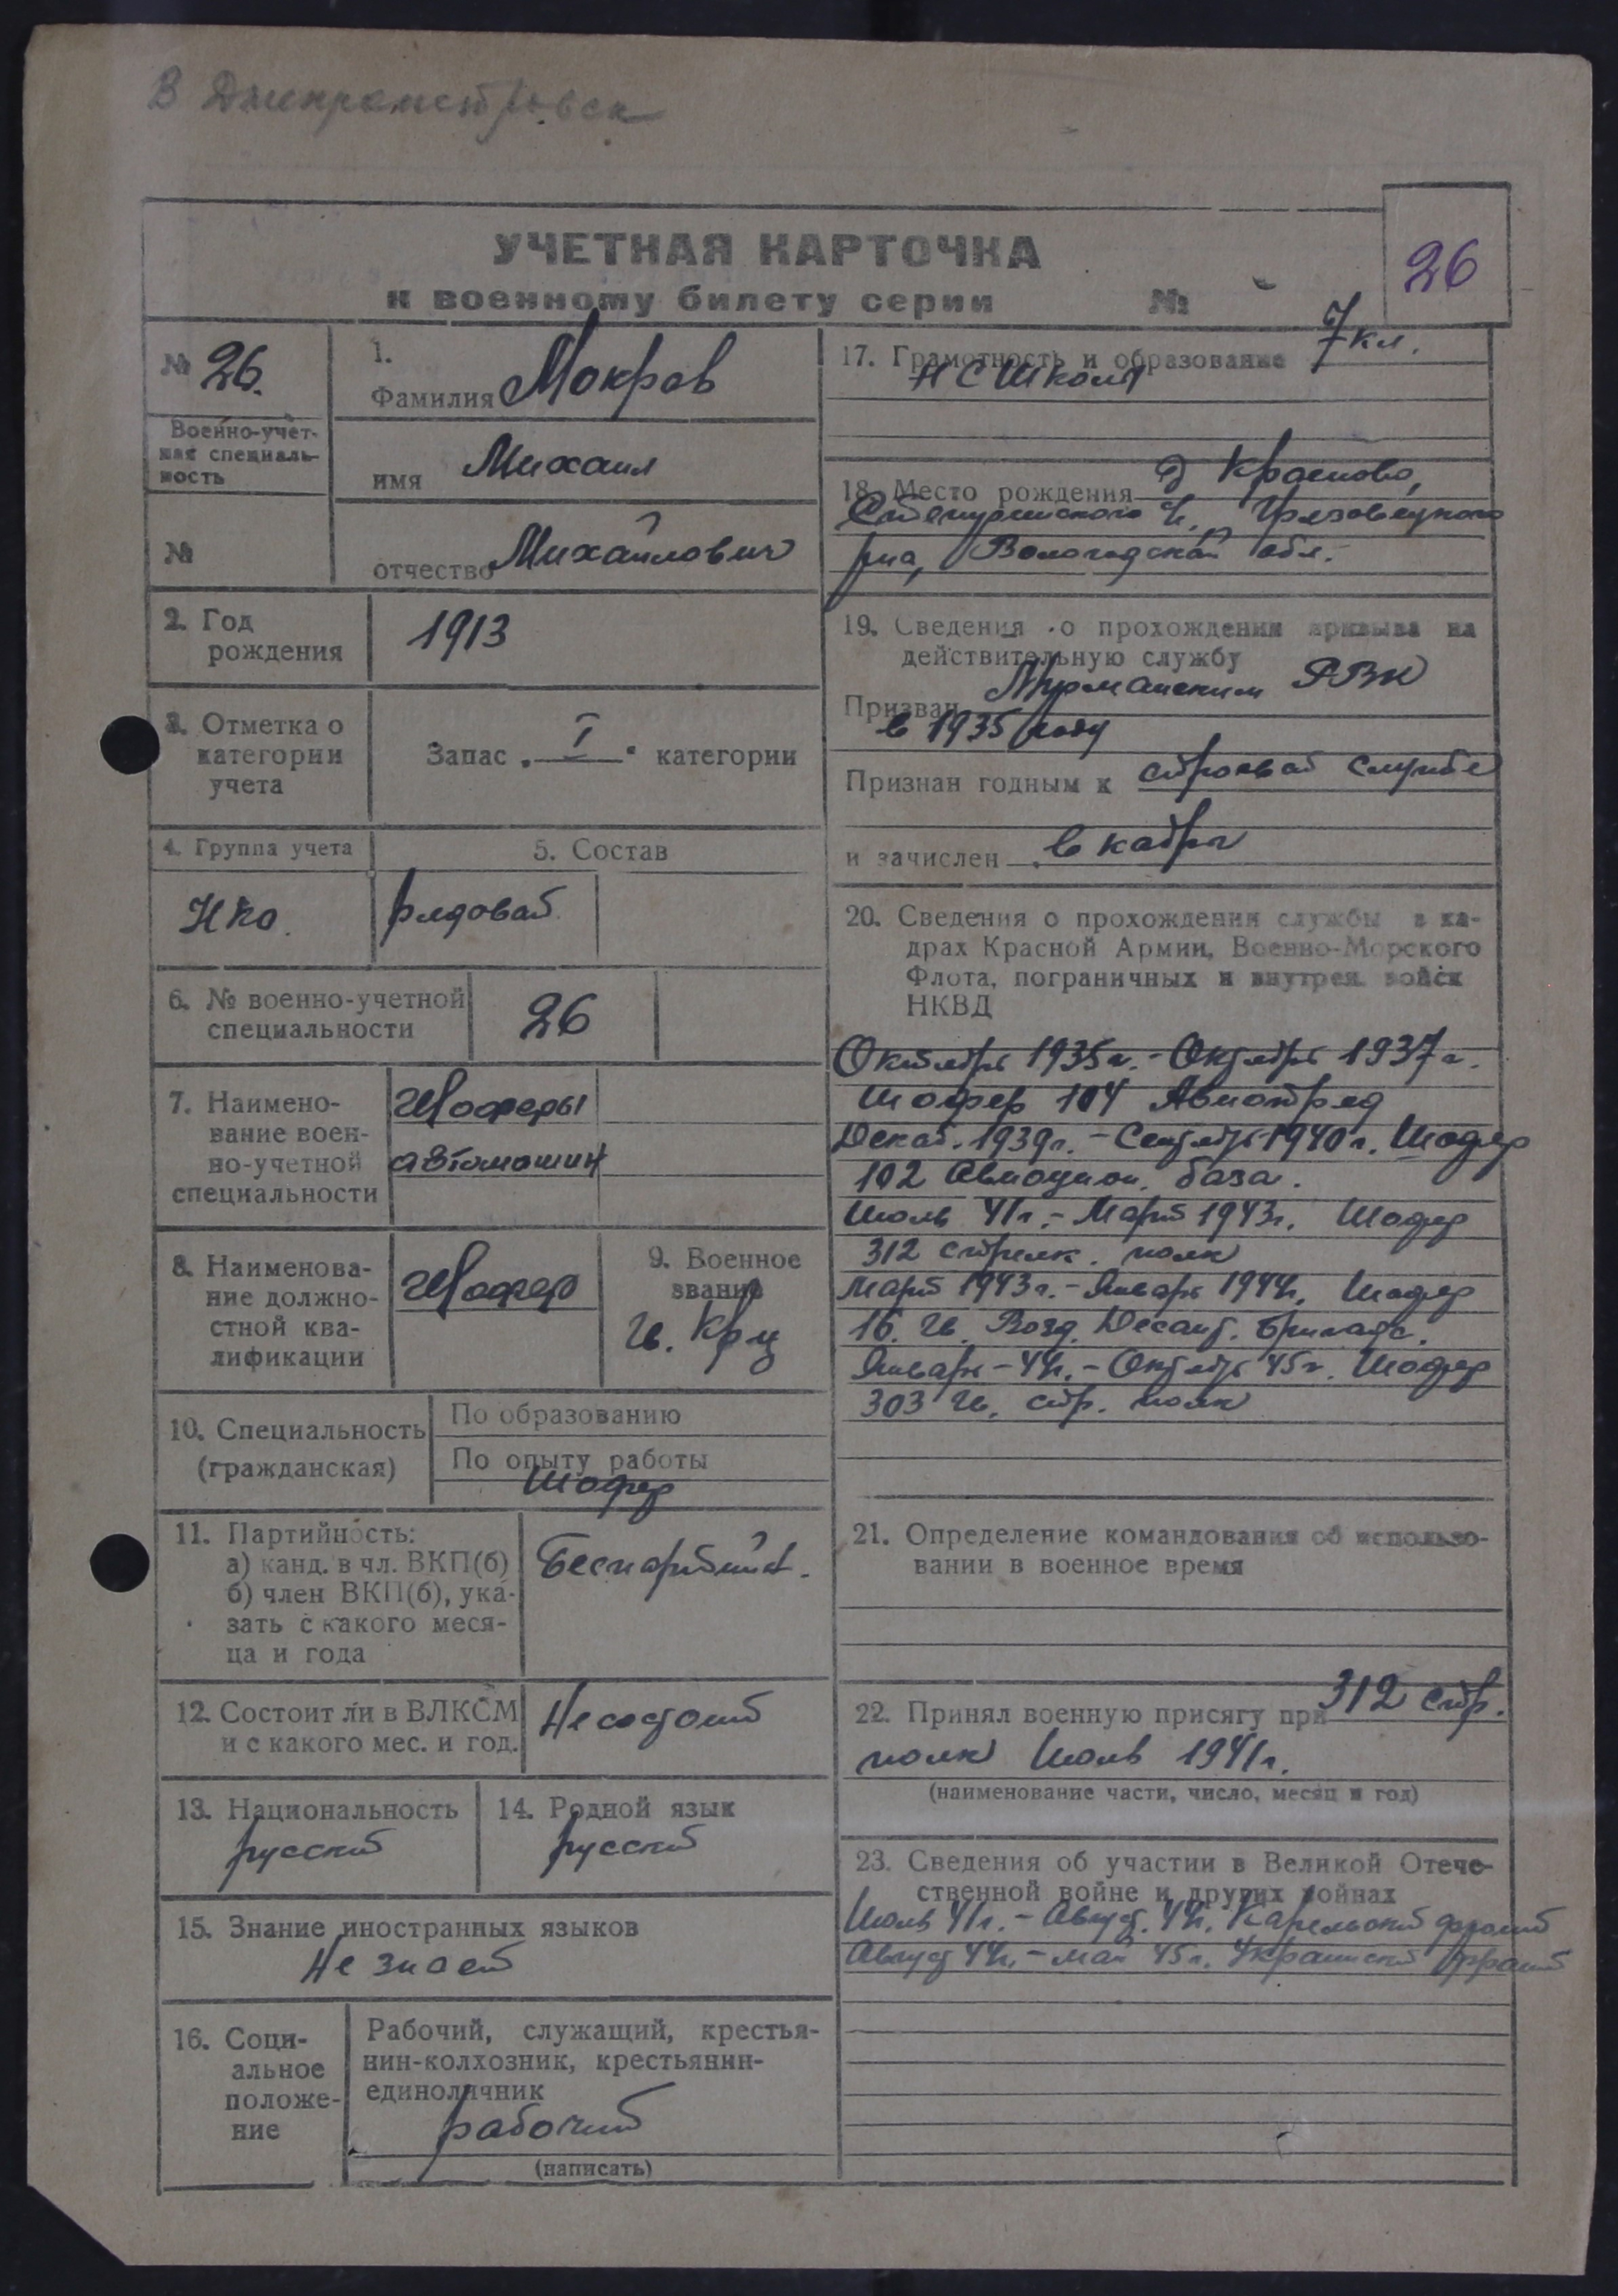 В Днепрапетровск
УЧЕТНАЯ КАРТОЧКА
к военному билету серии №
26
№ 26.
Военно-учет-
ная специаль-
ность
№
1.
Фамилия Мокров
имя Михаил
отчество Михайлович
2. Год
рождения
1913
3. Отметка о
категории
учета
Запас „I“ категории
4. Группа учета
НКО.
5. Состав
рядовой
6. № военно-учетной
специальности
26
7. Наимено-
вание воен-
но-учетной
специальности
Шоферы
автомашин
8. Наименова-
ние должно-
стной ква-
лификации
Шофер
9. Военное
звание
Гв. Кр-ц
10. Специальность
(гражданская)
По образованию
По опыту работы
Шофер
11. Партийность:
а) канд. в чл. ВКП(б)
б) член ВКП(б), ука-
зать с какого меся-
ца и года
Беспартийн.
12. Состоит ли в ВЛКСМ
и с какого мес. и год.
Не состоит
13. Национальность
русский
14. Родной язык
русский
15. Знание иностранных языков
Не знает
16. Соци-
альное
положе-
ние
Рабочий, служащий, крестья-
нин-колхозник, крестьянин-
единоличник
рабочий
(написать)
17. Грамотность и образование 7 кл.
НС Школы
18. Место рождения д
Грязовецкого
р-на, Вологодской обл.
19. Сведения о прохождении призыва на
действительную службу
Призван Мурманским РВК
в 1935 году
Признан годным к строевой службе
и зачислен в кадры
20. Сведения о прохождении службы в ка-
драх Красной Армии, Военно-Морского
Флота, пограничных и внутрен. войск
НКВД
Октябрь 1935 г. - Октябрь 1937 г.
Шофер 104 Авиотряд
Декаб. 1939 г. - Сентябрь 1940 г. Шофер
102 Авиацион. база.
Июль 41 г. - Март 1943 г. Шофер
312 стрелк. полк
Март 1943 г. - Январь 1944 г. Шофер
16. Гв. Возд. Десант. Бригада.
Январь - 44 г. - Октябрь 45 г. Шофер
303 Гв. стр. полк
21. Определение командования об использо-
вании в военное время
22. Принял военную присягу при 312 стр.
полк Июль 1941 г.
(наименование части, число, месяц и год)
23. Сведения об участии в Великой Отече-
ственной войне и других войнах
Июль 41 г. - Август. 44 г. Карельский фронт
Август 44 г. - май 45 г. Украинский фронт